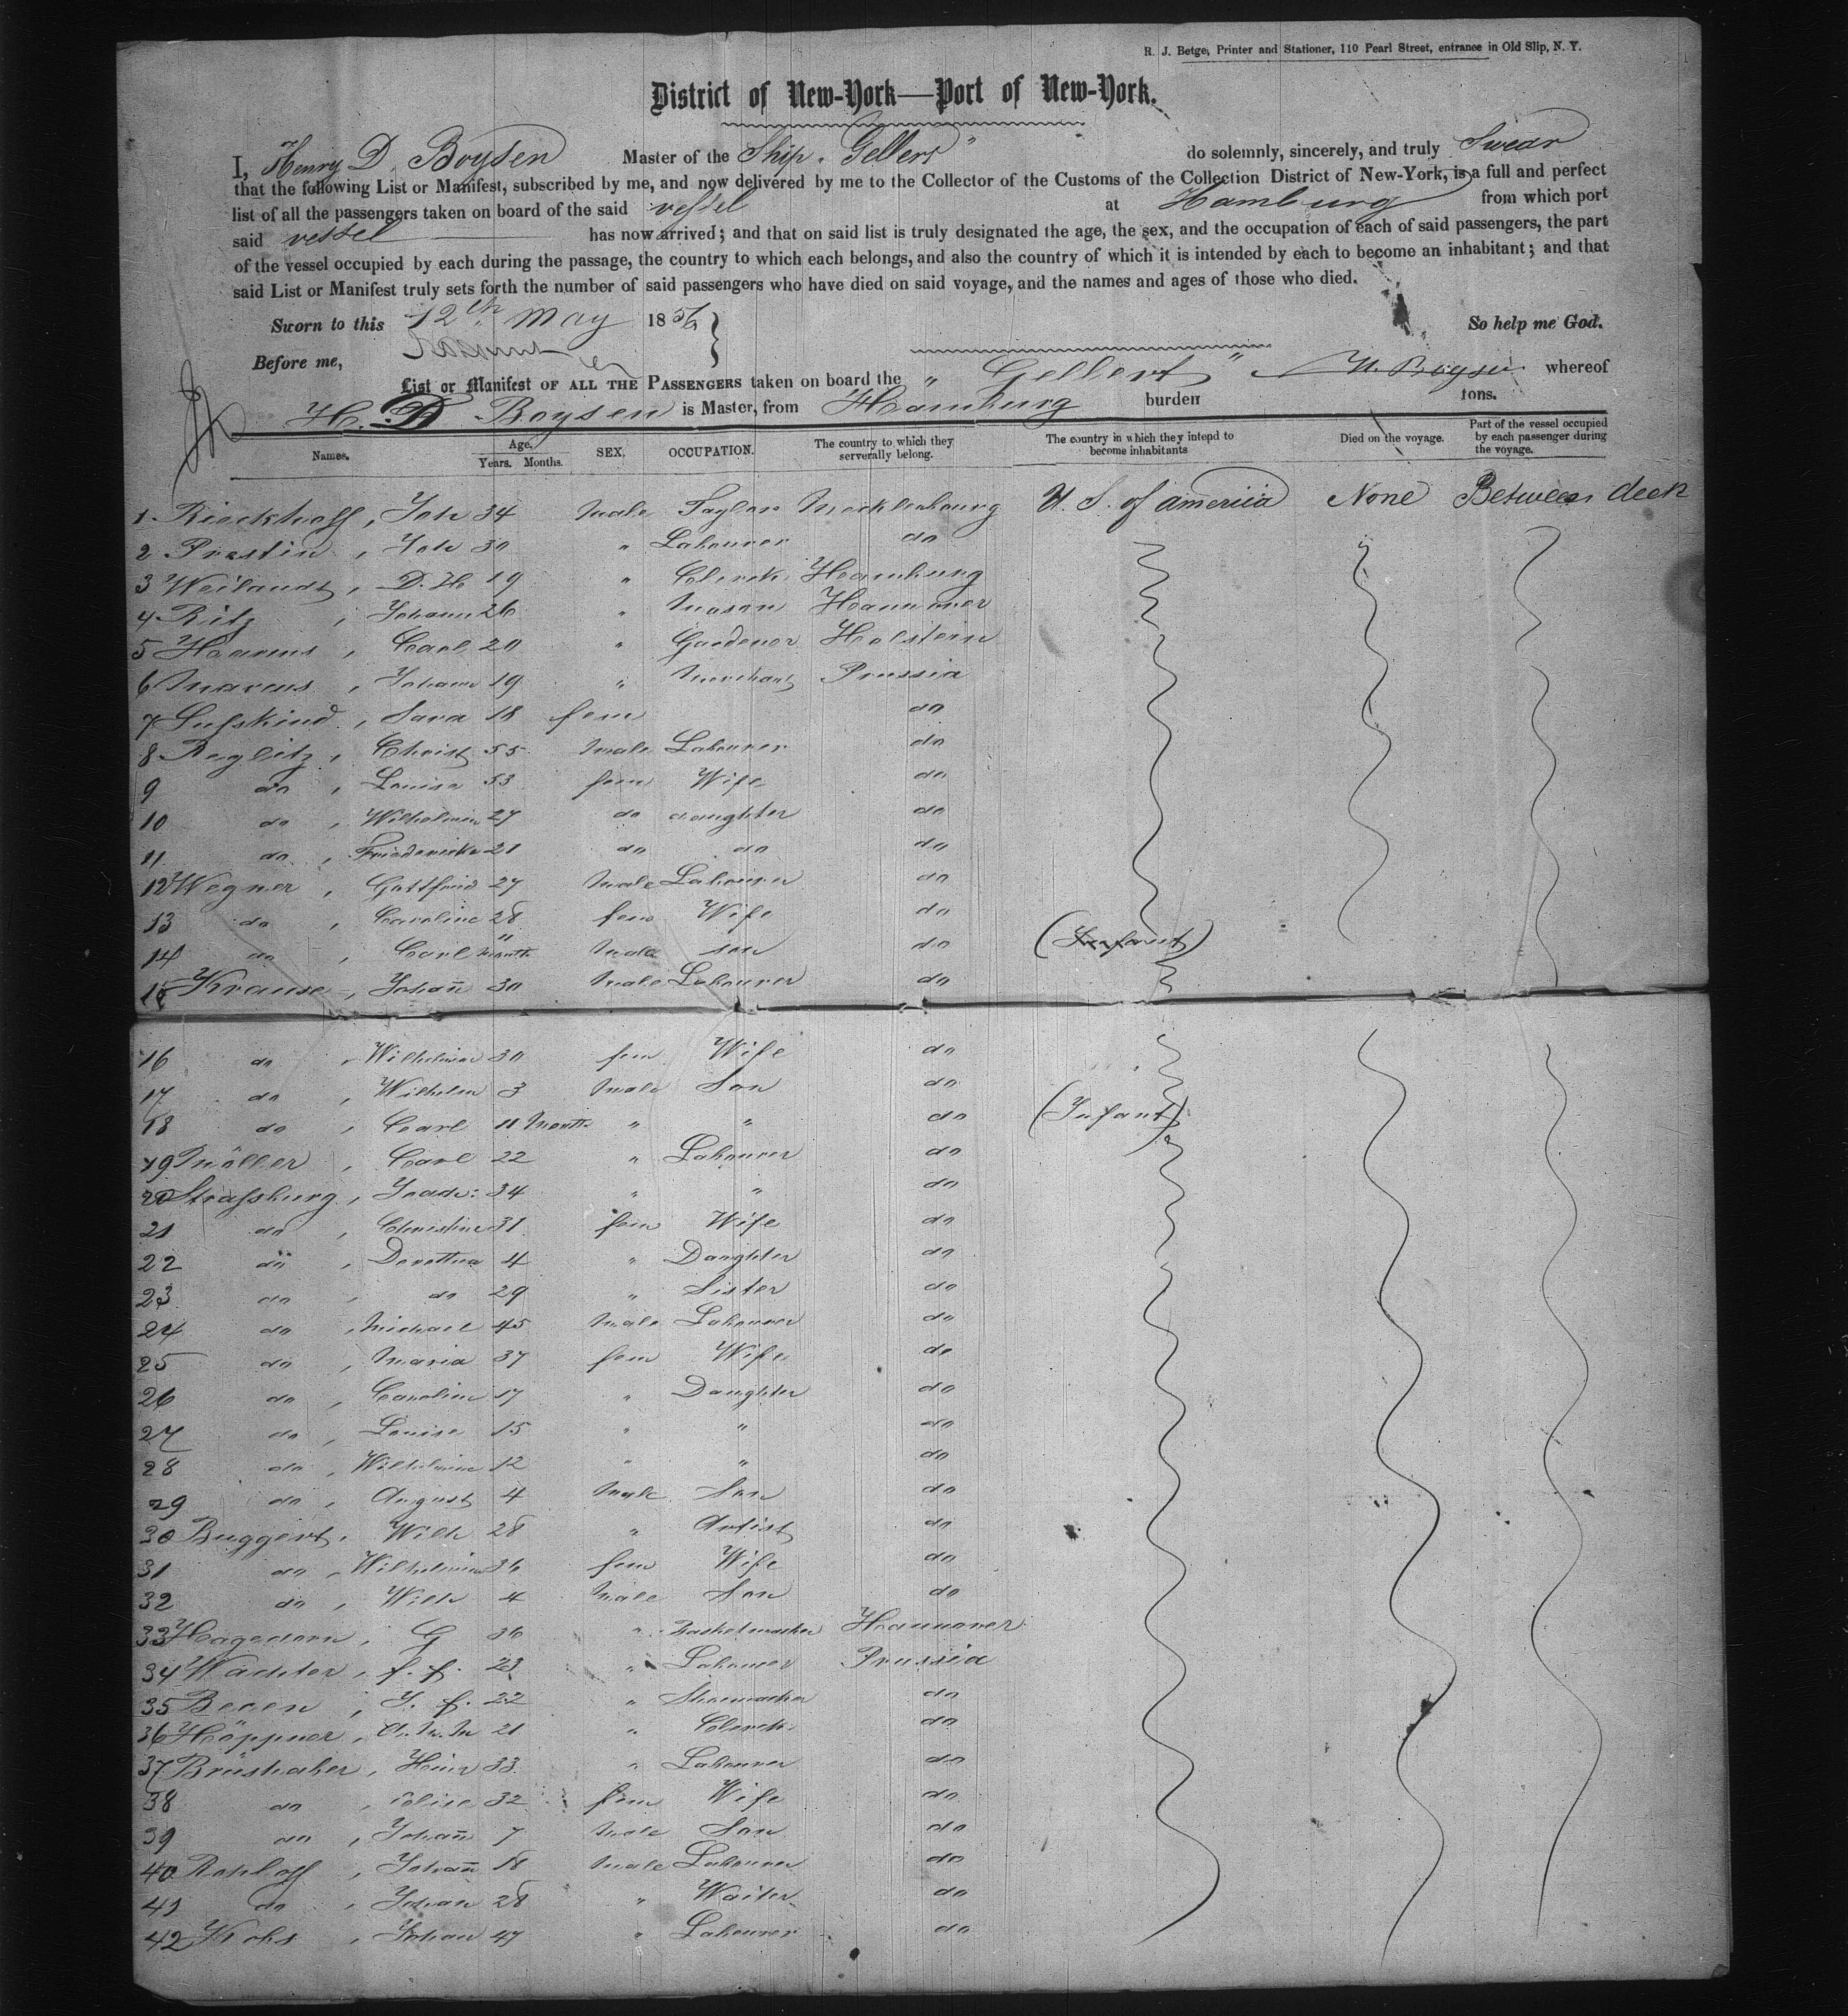 R. J. Betge, Printer and Stationer, 110 Pearl Street, entrance in Old Slip, N. Y.
District of New-York—Port of New-York.
I, Henry D. Boysen Master of the Ship "Gellert" do solemnly, sincerely, and truly Swear
that the following List or Manifest, subscribed by me, and now delivered by me to the Collector of the Customs of the Collection District of New-York, is a full and perfect
list of all the passengers taken on board of the said vessel at Hamburg from which port
said vessel has now arrived; and that on said list is truly designated the age, the sex, and the occupation of each of said passengers, the part
of the vessel occupied by each during the passage, the country to which each belongs, and also the country of which it is intended by each to become an inhabitant; and that
said List or Manifest truly sets forth the number of said passengers who have died on said voyage, and the names and ages of those who died.
Sworn to this 12th May 1856 So help me God.
Before me,
List or Manifest OF ALL THE PASSENGERS taken on board the "Gellert" H. Boysen whereof
H. D Boysen is Master, from Hamburg burden tons.
Names. Age. Years. Months. SEX. OCCUPATION. The country to which they serverally belong. The country in which they intend to become inhabitants Died on the voyage. Part of the vessel occupied by each passenger during the voyage.
1 Rieckhoff, Joh 34 Male Taylor Mecklenbourg U. S. of ameriia None Between deck
2 Prestin, Joh 30 " Labourer do
3 Weilandt, D. H 19 " Clerck Hamburg
4 Ritz, Johann 26 " Mason Hannover
5 Harms, Carl 20 " Gardener Holstein
6 Marcus, Johann 19 " Merchant Prussia
7 Susskind, Sara 18 fem do
8 Reglitz, Christ 55 Male Labourer do
9 do, Louise 53 fem Wife do
10 do, Wilhelmin 27 do daughter do
11 do, Friedericke 21 do do do
12 Wegner, Gottfried 27 Male Labourer do
13 do, Caroline 28 fem Wife do
14 do, Carl 11 Month Male son do (Infant)
15 Krause, Johañ 30 Male Labourer do
16 do, Wilhelmine 30 fem Wife do
17 do, Wilhelm 3 Male Son do
18 do, Carl 11 Month " " do (Infant)
19 Möller, Carl 22 " Labourer do
20 Strassburg, Joach: 34 " " do
21 do, Christine 31 fem Wife do
22 do, Dorothea 4 " Daughter do
23 do, do 29 " Sister do
24 do, Michael 45 Male Labourer do
25 do, Maria 37 fem Wife do
26 do, Caroline 17 " Daughter do
27 do, Louise 15 " " do
28 do, Wilhelmine 12 " " do
29 do, August 4 Male Son do
30 Buggert, Wilh 28 " Artist do
31 do, Wilhelmine 36 fem Wife do
32 do, Wilh 4 Male Son do
33 Hagedorn, G 36 " Basketmacher Hannover
34 Wächter, f. f. 23 " Labourer Prussia
35 Becen, J. f. 22 " Shoemacher do
36 Höppner, A. M. M 21 " Clerck do
37 Brüshaber, Heinr 33 " Labourer do
38 do, Elise 32 fem Wife do
39 do, Johañ 7 Male Son do
40 Rohloff, Johañ 58 Male Labourer do
41 do, Johan 28 " Waiter do
42 Kohs, Johan 47 " Labourer do